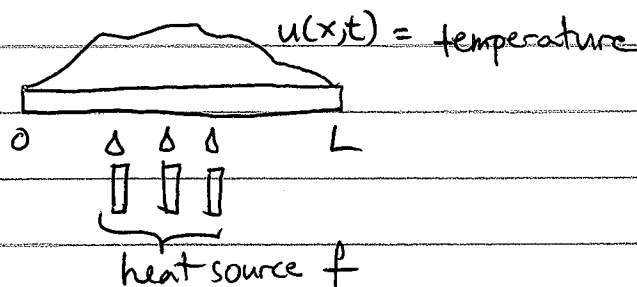 u(x,t) = temperature
0 L
heat source f